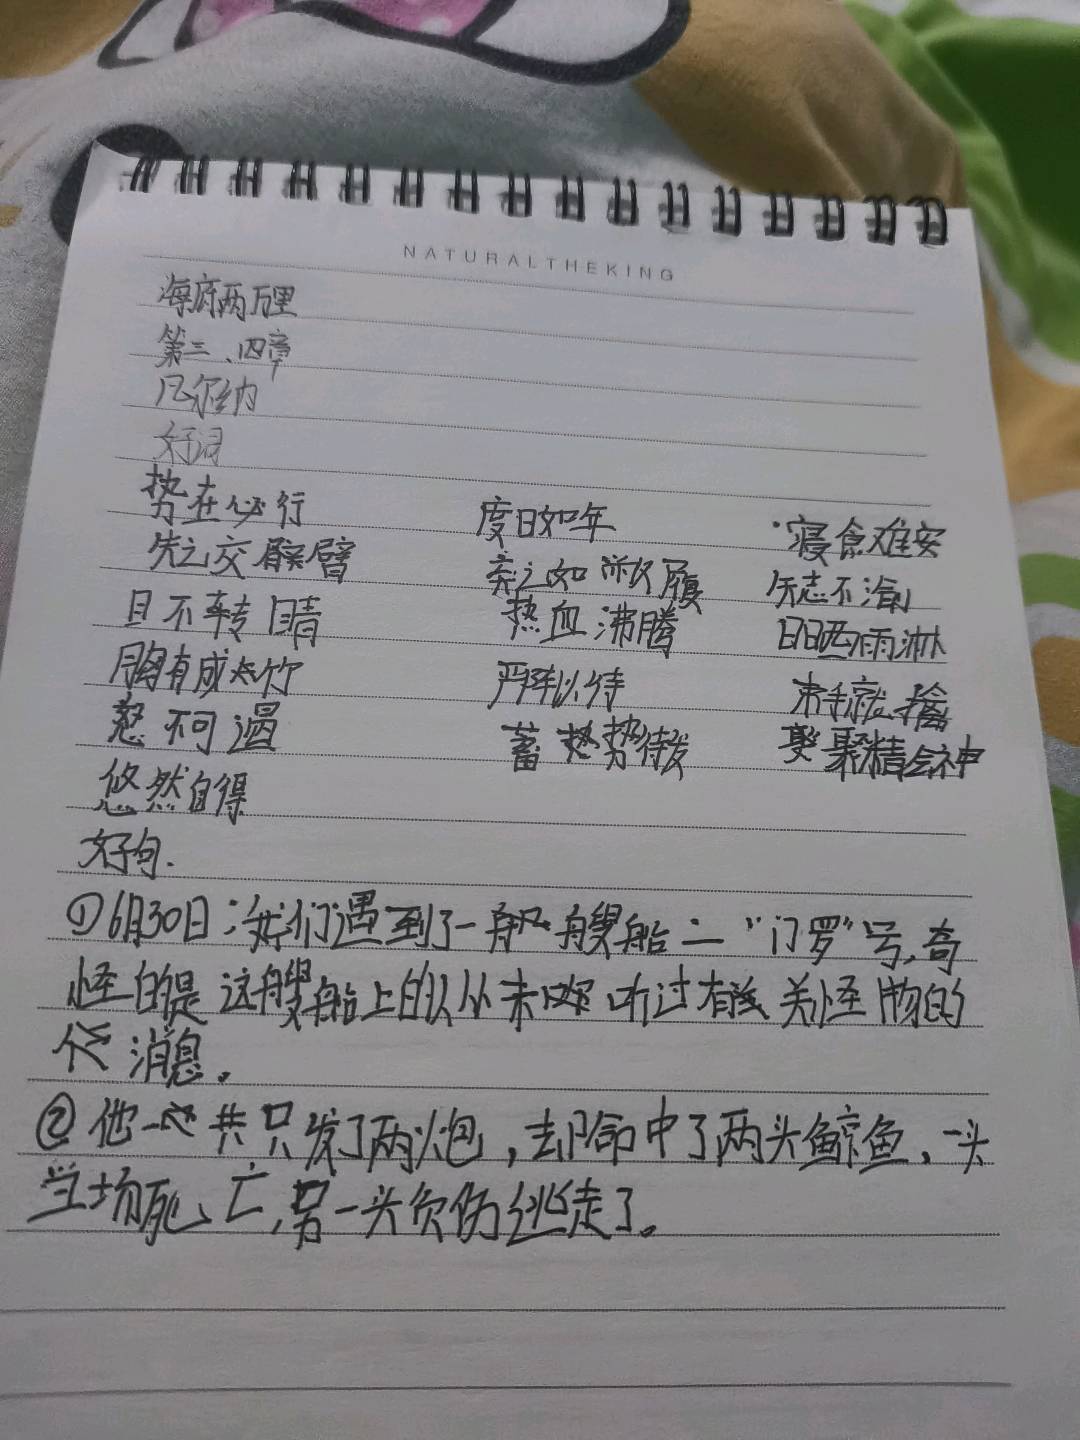 NATURALTHEKING
海底两万里
第三、四章
凡尔纳
好词
势在必行 度日如年 寝食难安
失之交臂 弃之如敝履 矢志不渝
目不转睛 热血沸腾 日晒雨淋
胸有成竹 严阵以待 束手就擒
怒不可遏 蓄势待发 聚精会神
悠然自得
好句.
①6月30日:我们遇到了一艘船二"门罗"号,奇
怪的是这艘船上的从未听过有关怪物的
消息。
②他一共只发了两炮,却命中了两头鲸鱼,一头
当场死亡,另一头负伤逃走了。